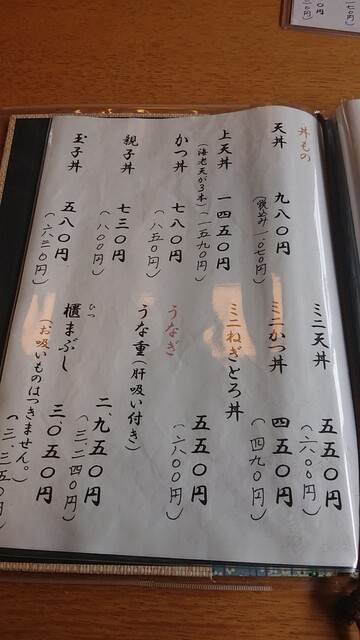 丼もの
天丼 九八〇円
(税込み一、〇七〇円)
上天丼 一四五〇円
(海老天が3本)(一五九〇円)
かつ丼 七八〇円
(八五〇円)
親子丼 七三〇円
(八〇〇円)
玉子丼 五八〇円
(六三〇円)
ミニ天丼 五五〇円
(六〇〇円)
ミニかつ丼 四五〇円
(四九〇円)
ミニねぎとろ丼 五五〇円
(六〇〇円)
うなぎ
うな重(肝吸い付き)
二、九五〇円
(三、二四〇円)
櫃まぶし 三、〇五〇円
ひつ
(お吸いものはつきません。)
(三、三五〇円)